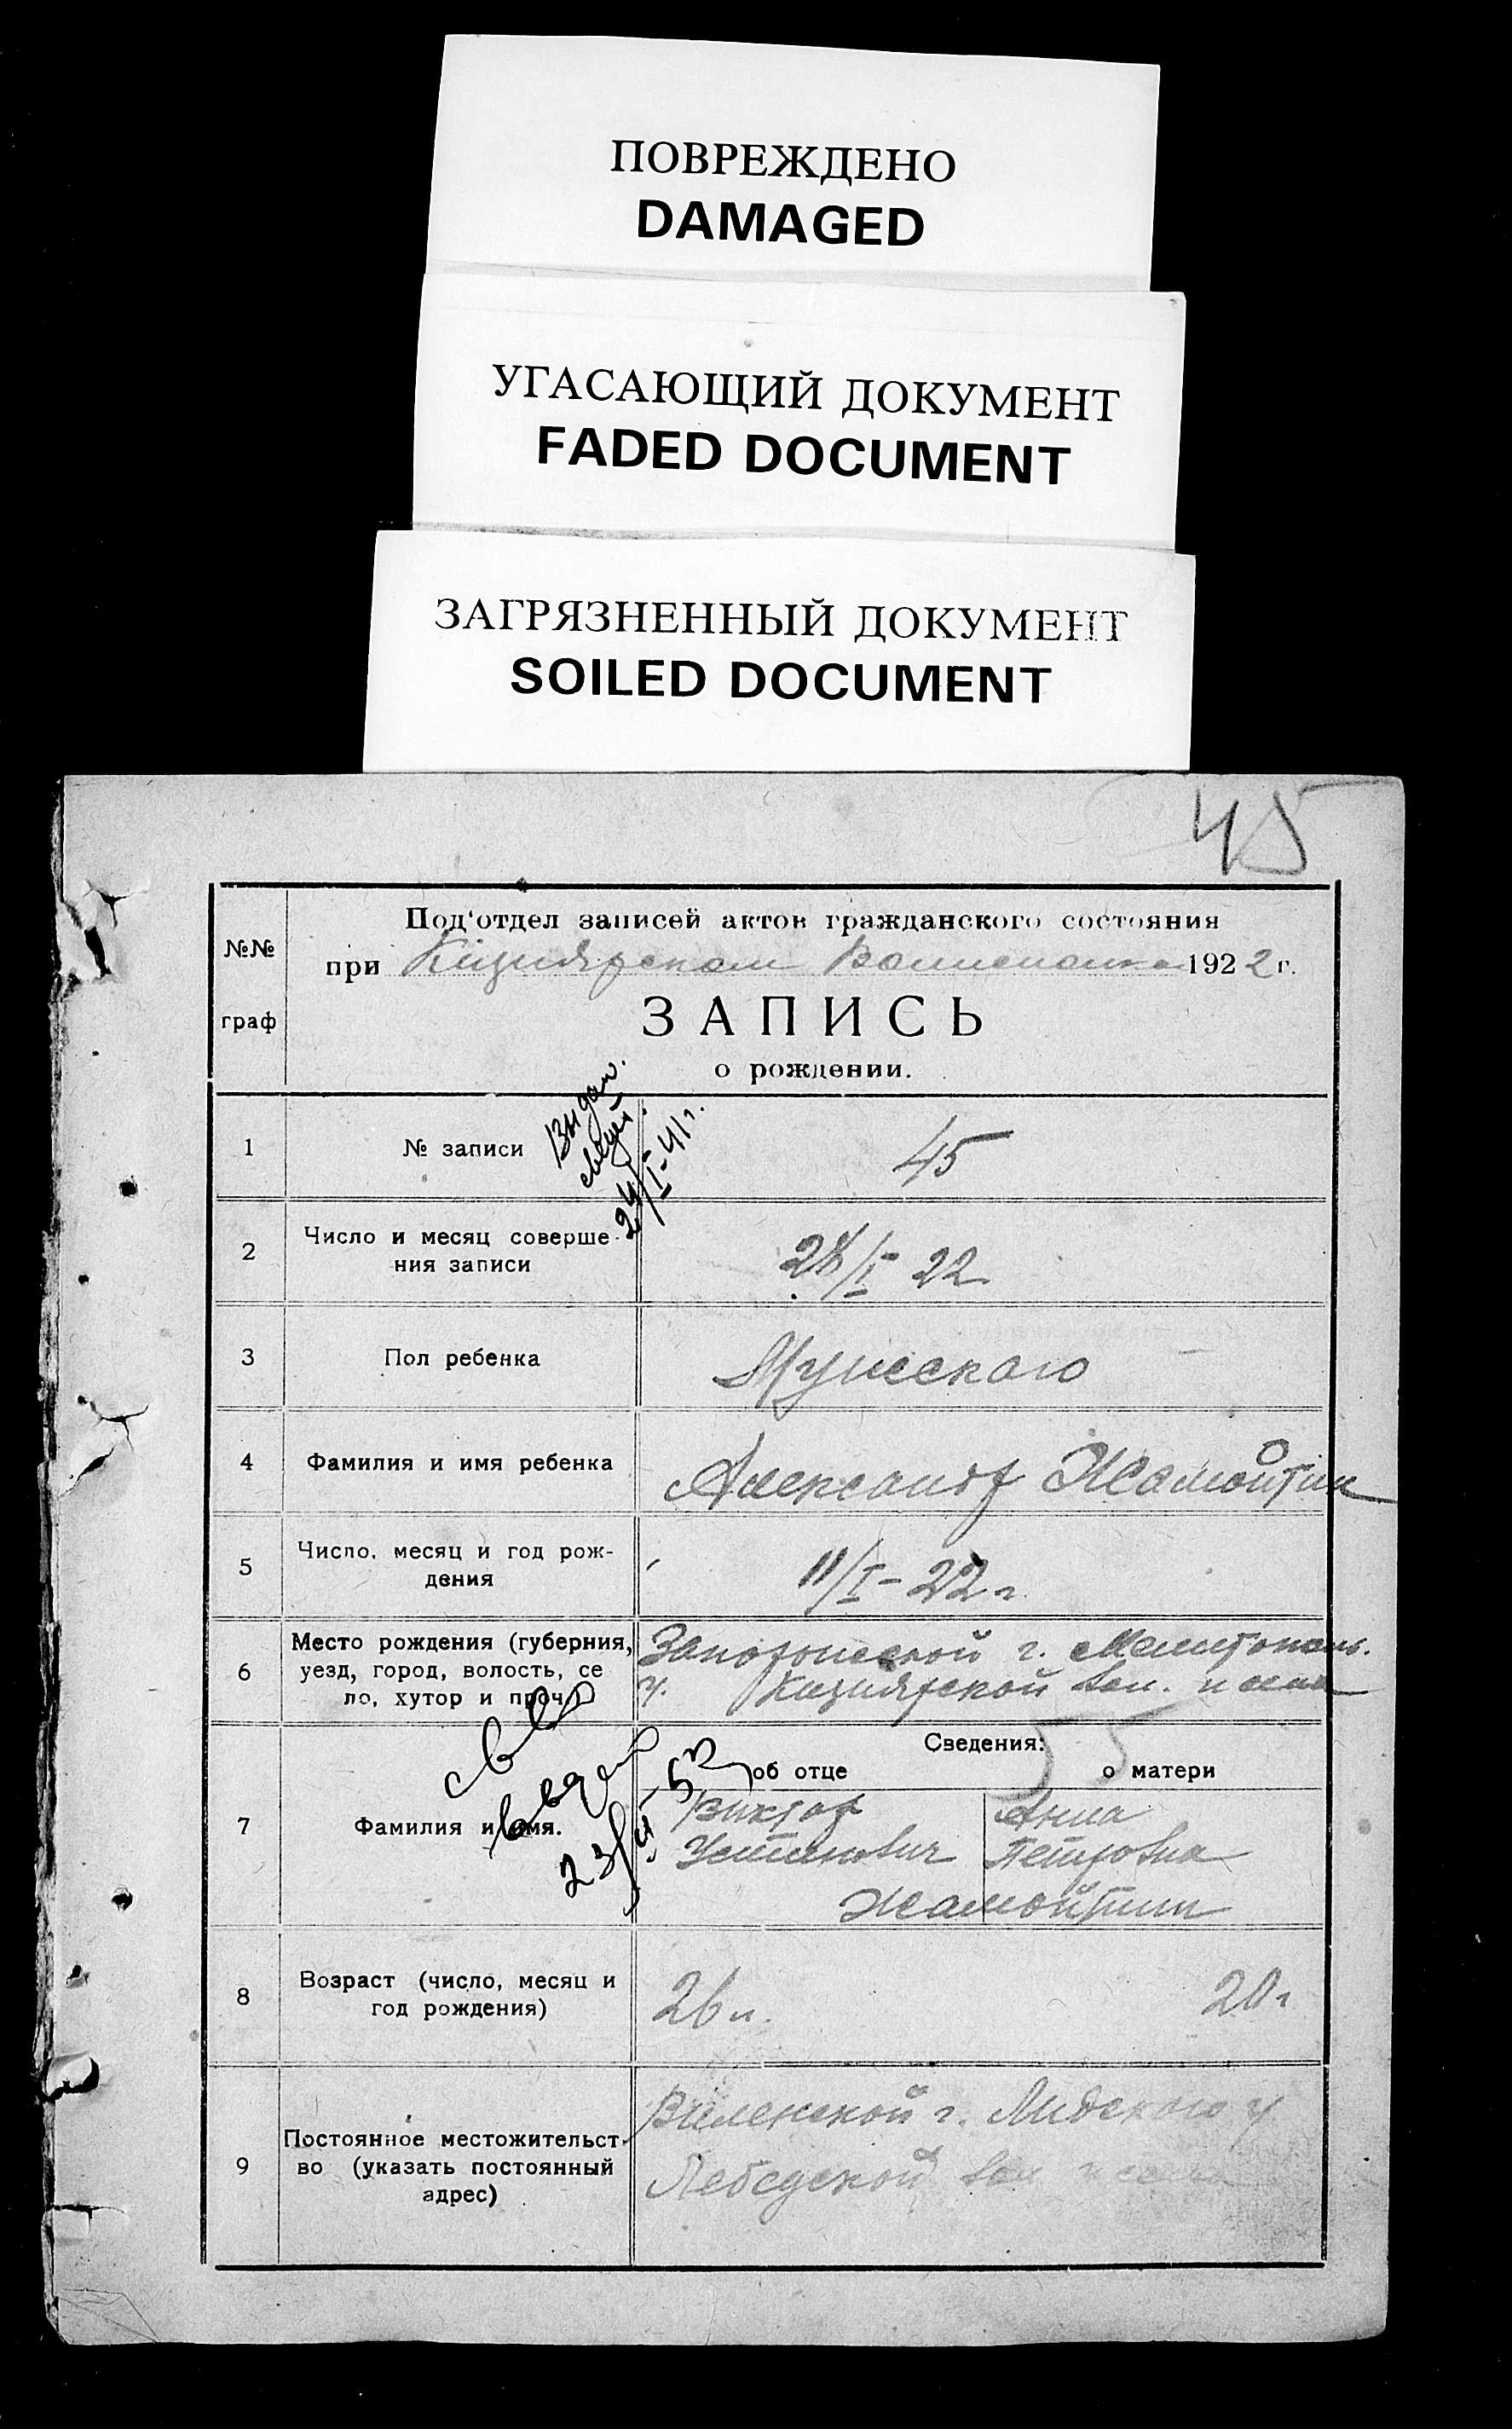 ПОВРЕЖДЕНО
DAMAGED
УГАСАЮЩИЙ ДОКУМЕНТ
FADED DOCUMENT
ЗАГРЯЗНЕННЫЙ ДОКУМЕНТ
SOILED DOCUMENT
45
№№
граф
Под'отдел записей актов гражданского состояния
при Кизиярском 1922 г.
ЗАПИСЬ
о рождении.
1
№ записи
45
Выдан.
24/I-41г.
2
Число и месяц соверше-
ния записи
28/I 22
3
Пол ребенка
Мужскаго
4
Фамилия и имя ребенка
Александр Жамойтин
5
Число, месяц и год рож-
дения
11/I-22 г.
6
Место рождения (губерния,
уезд, город, волость, се
ло, хутор и проч.)
Запорожской г. Мелитополь.
у. Кизиярской вол. и села
Сведения:
об отце
о матери
55
7
Фамилия и имя.
св во
выдано
Виктор
Устинович
Анна
Петровна
Жамойтин
8
Возраст (число, месяц и
год рождения)
26 л.
20 г.
9
Постоянное местожительст-
во (указать постоянный
адрес)
Виленской г. Лидскаго у
Лебедской вол и села